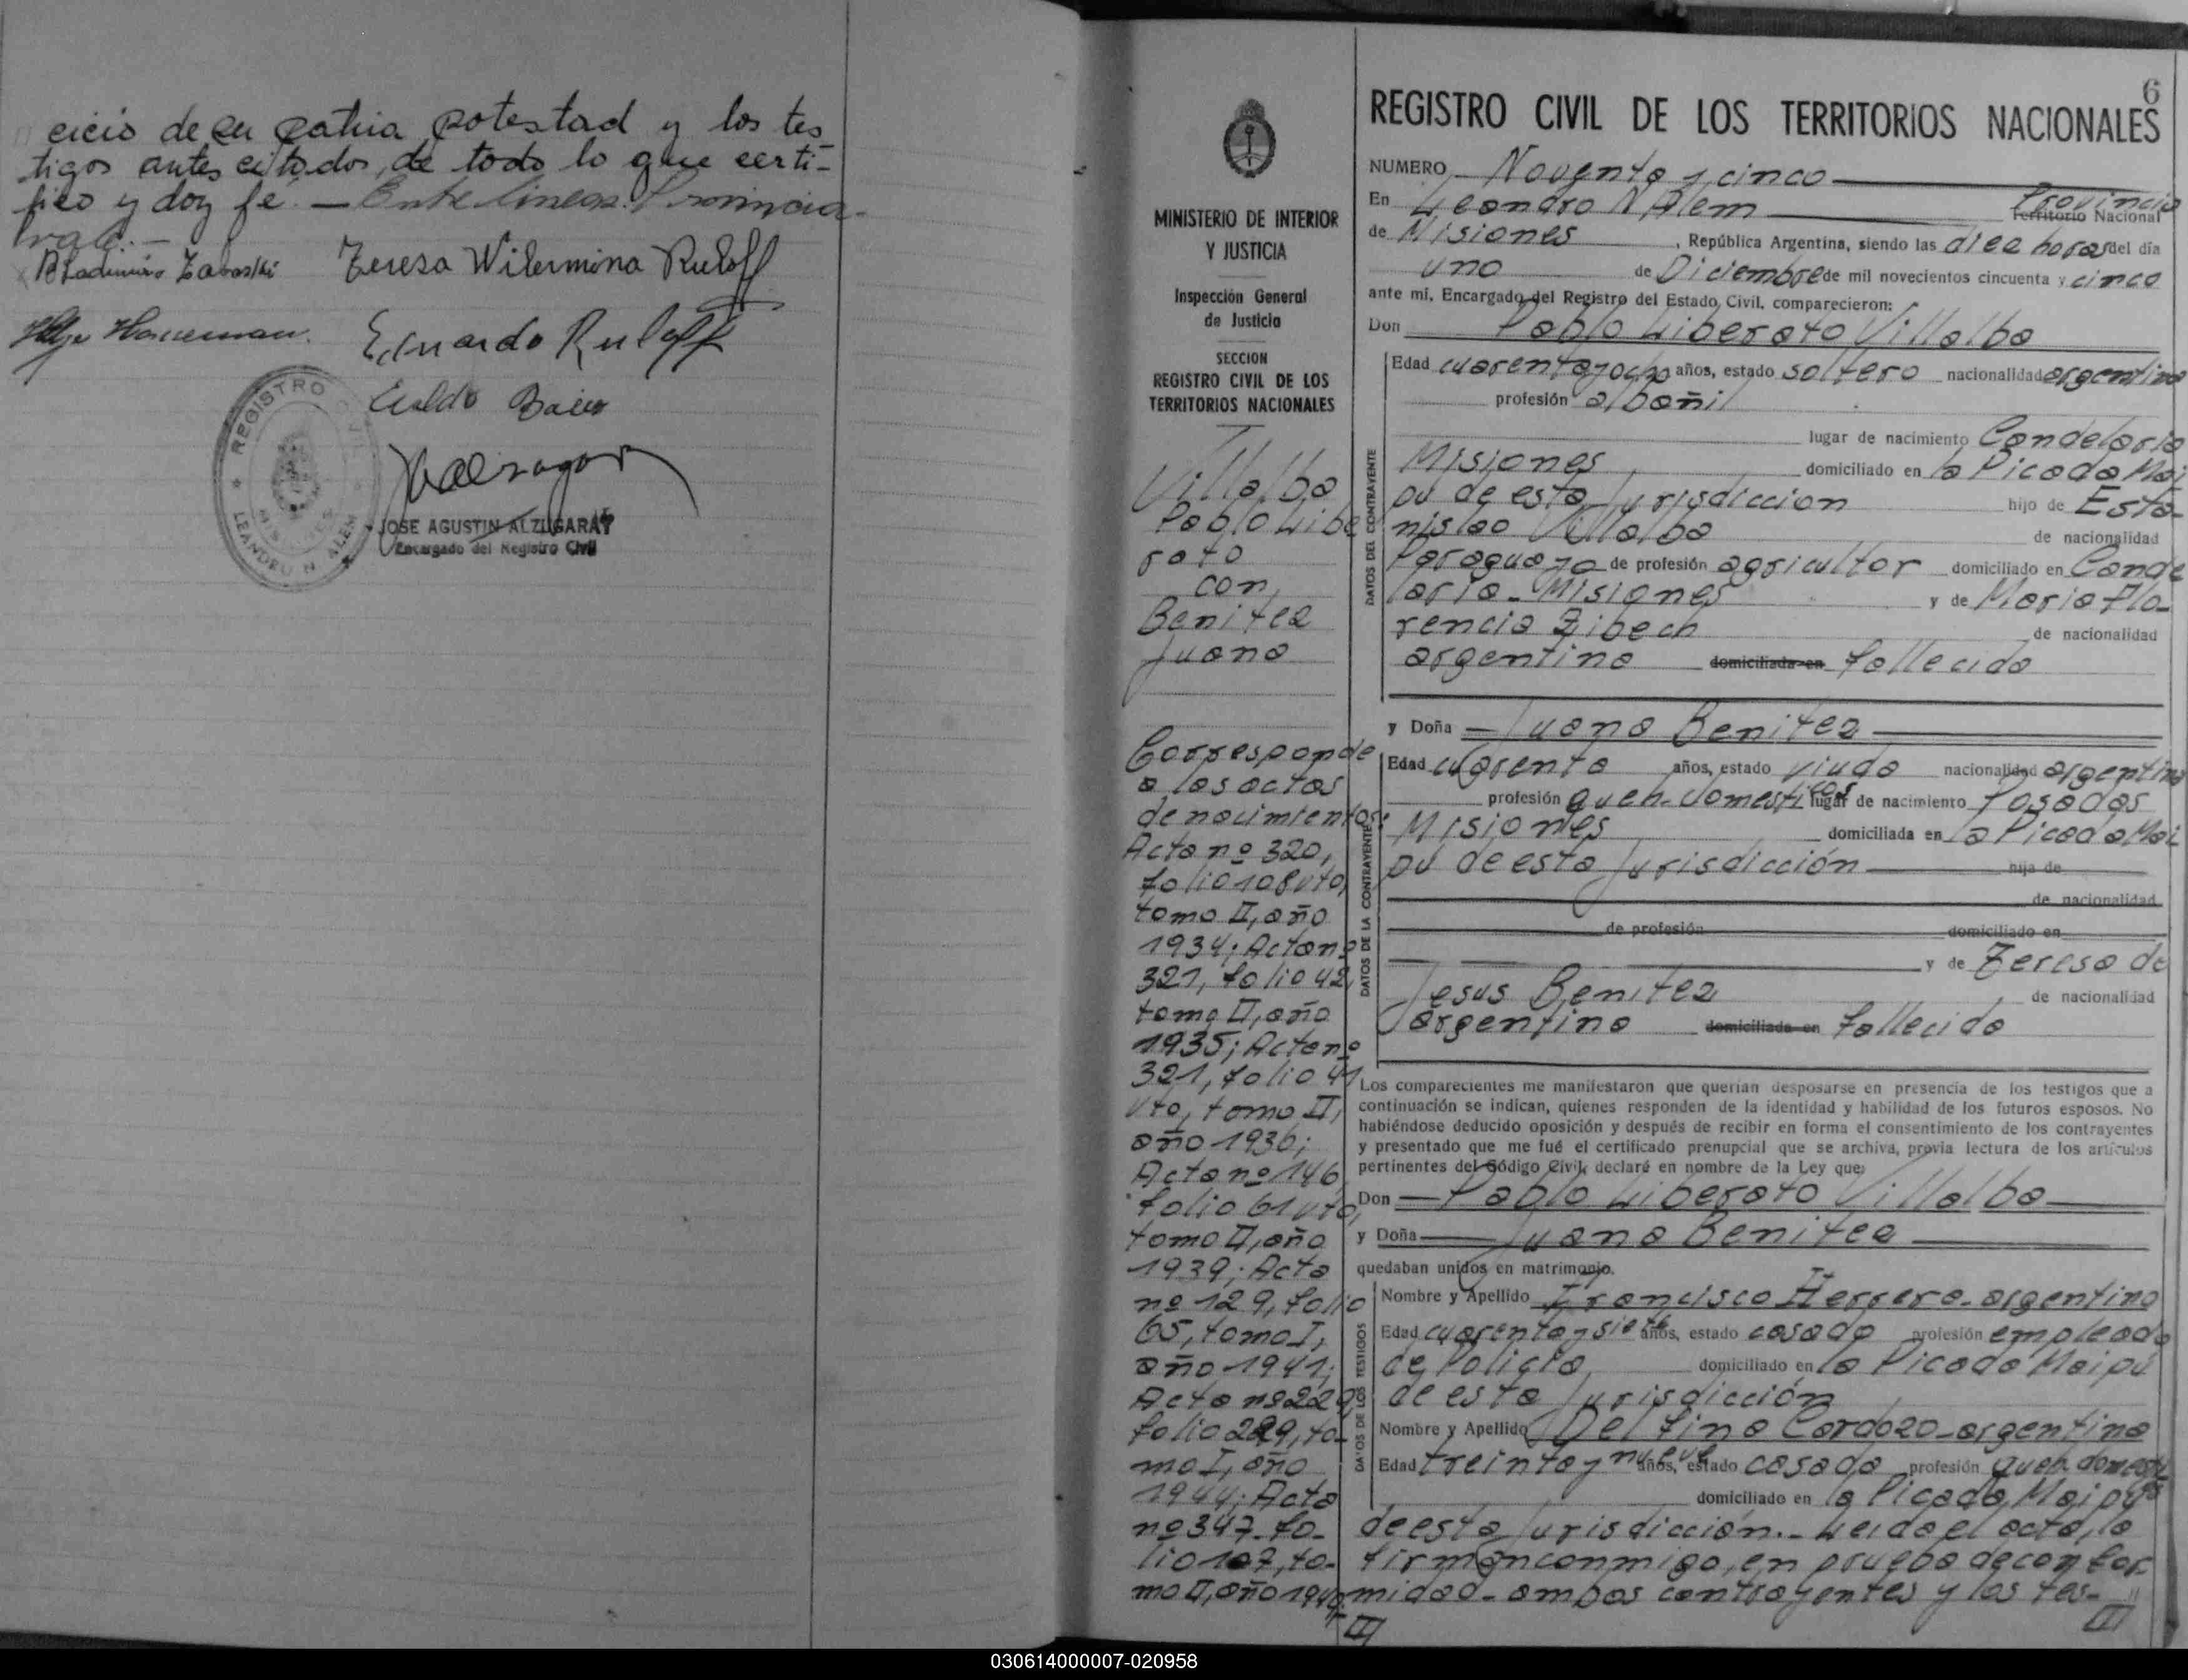 cicio de su patria potestad y los tes
tigos antes citados, de todo lo que certi-
fico y doy fé.— Entre lineas: Provincia-
vale.—
Teresa Wilermina Ruloff
Eduardo Ruloff
REGISTRO CIVIL
MISIONES
LEANDRO N. ALEM
JOSE AGUSTIN ALZUGARAY
Encargado del Registro Civil
6
REGISTRO CIVIL DE LOS TERRITORIOS NACIONALES
MINISTERIO DE INTERIOR
Y JUSTICIA
Inspección General
de Justicia
SECCION
REGISTRO CIVIL DE LOS
TERRITORIOS NACIONALES
Villalba
Pablo Libe
rato
con
Benitez
Juana
Corresponde
a las actas
de nacimientos:
Acta nº 320,
folio 108 vto,
tomo II, año
1934; Acta nº
321, folio 42,
tomo II, año
1935; Acta nº
321, folio 41
vto, tomo II,
año 1936;
Acta nº 146
folio 61 vto,
tomo II, año
1939; Acta
nº 129, folio
65, tomo I,
año 1941;
Acta nº 229,
folio 229, to-
mo I, año
1944; Acta
nº 347- fo-
lio 107, to-
mo II, año
III
NUMERO Noventa y cinco
En Leandro N Alem Provincia Territorio Nacional
de Misiones , República Argentina, siendo las diez horas del día
uno de Diciembre de mil novecientos cincuenta y cinco
ante mí, Encargado del Registro del Estado Civil, comparecieron:
Don Pablo Liberato Villalba
DATOS DEL CONTRAYENTE
Edad cuarenta y ocho años, estado soltero nacionalidad argentina
profesión albañil
lugar de nacimiento Candelaria
Misiones domiciliado en la Picada Mai
pu de esta Jurisdiccion hijo de Esta-
nislao Villalba de nacionalidad
Paraguaya de profesión agricultor domiciliado en Cande
laria- Misiones y de Maria Flo-
rencia Zibech de nacionalidad
argentina domiciliada en fallecida
y Doña Juana Benitez
DATOS DE LA CONTRAYENTE
Edad cuarenta años, estado viuda nacionalidad argentina
profesión queh. domesticos lugar de nacimiento Posadas
Misiones domiciliada en la Picada Mai
pú de esta Jurisdicción hija de
de nacionalidad
de profesión domiciliado en
y de Teresa de
Jesus Benitez de nacionalidad
argentina domiciliada en fallecida
Los comparecientes me manifestaron que querían desposarse en presencia de los testigos que a
continuación se indican, quienes responden de la identidad y habilidad de los futuros esposos. No
habiéndose deducido oposición y después de recibir en forma el consentimiento de los contrayentes
y presentado que me fué el certificado prenupcial que se archiva, previa lectura de los artículos
pertinentes del Código Civil, declaré en nombre de la Ley que:
Don Pablo Liberato Villalba
y Doña Juana Benitez
quedaban unidos en matrimonio.
DATOS DE LOS TESTIGOS
Nombre y Apellido Francisco Herrera- argentino
Edad cuarenta y siete años, estado casado profesión empleado
de Policia domiciliado en la Picada Maipú
de esta Jurisdicción
Nombre y Apellido Delfina Cardozo- argentina
Edad treinta y nueve años, estado casada profesión queh. domesticos
domiciliado en la Picada Maipú
de esta Jurisdicción.- Leida el acta, la
firman conmigo, en prueba de confor-
midad- ambos contrayentes y los tes-
III
030614000007-020958